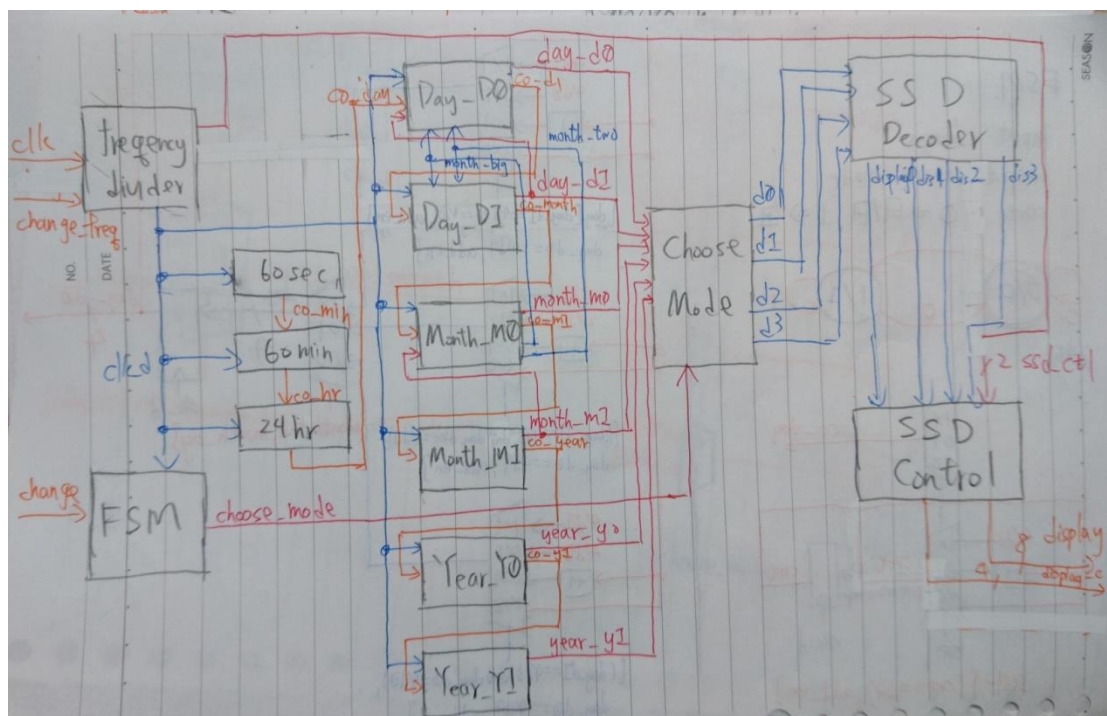 SEASON
NO.
DATE
clk
change_freq
freqency
divider
60 sec
co_min
60 min
co_hr
24 hr
clkd
change
FSM
choose_mode
co_day
Day_D0
day_d0
co_d1
month_two
month_big
Day_D1
day_d1
co_month
Month_M0
month_m0
co_m1
Month_M1
month_m1
co_year
Year_Y0
year_y0
co_y1
Year_Y1
year_y1
Choose
Mode
d0
d1
d2
d3
SSD
Decoder
dis1
dis2
dis3
2 ssd_ctl
SSD
Control
8 display
4